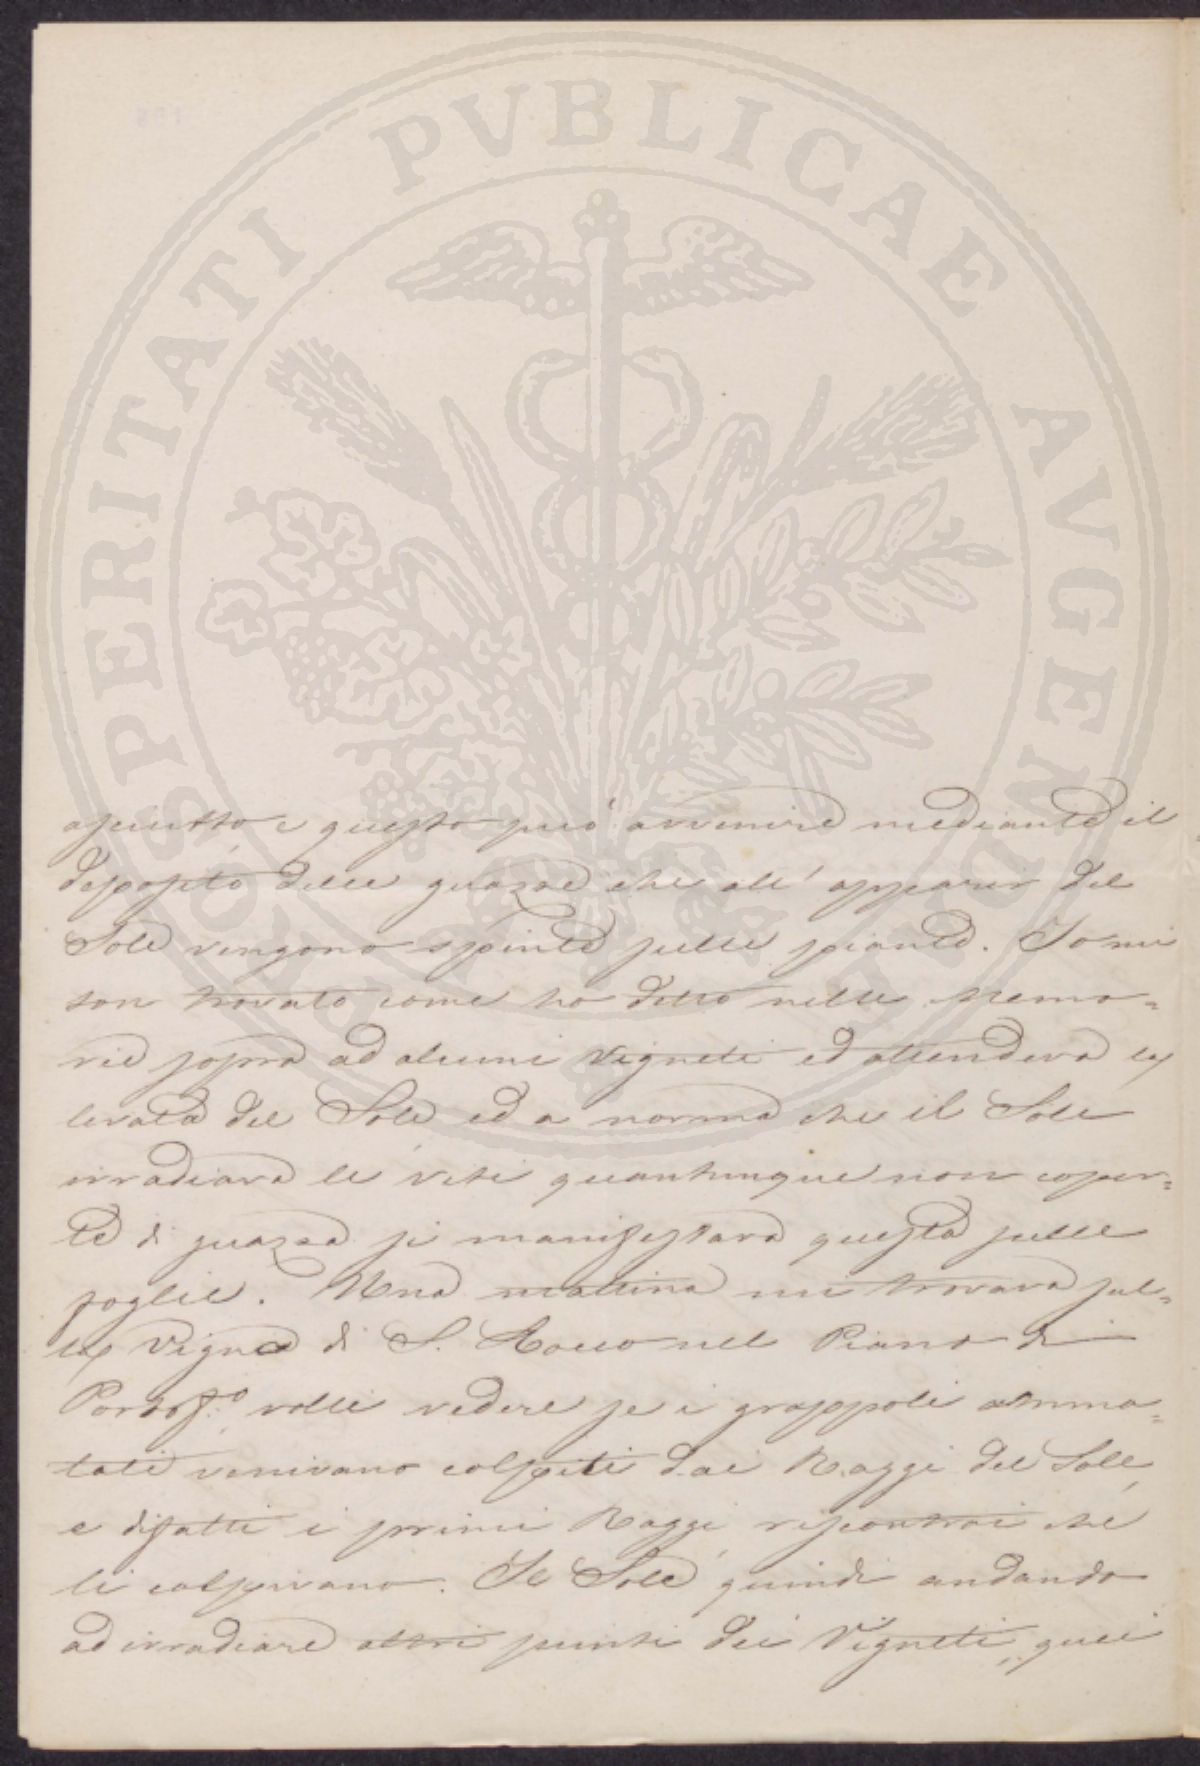 PROSPERITATI PVBLICAE AVGENDAE
asciutto e questo può avvenire mediante il
deposito delle guazze che all' apparir del
Sole vengono spinte sulle piante. Io mi
son trovato come ho detto nelle Memo=
rie sopra ad alcuni Vigneti ed attendeva la
levata del Sole ed a norma che il Sole
irradiava le viti quantunque non coper=
te di guazza si manifestava questa sulle
foglie. Una mattina mi trovava sul=
la Vigna di S. Rocco nel Piano di
Portof.º volli vedere se i grappoli amma=
lati venivano colpiti dai Raggi del Sole,
e difatti i primi Raggi riscontrai che
li colpivano. Il Sole quindi andando
ad irradiare altri punti dei Vigneti, quei